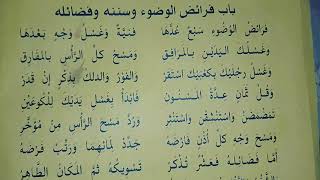 باب فرائض الوضوء وسننه وفضائله
فَرَائِضُ الْوُضُوءِ سَبْعٌ عُدَّهَا فَنِيَّةٌ وَغَسْلُ وَجْهٍ بَعْدَهَا
وَغَسْلُكَ الْيَدَيْنِ بِالْمَرَافِقِ وَمَسْحُ كُلِّ الرَّأْسِ بِالْمَفَارِقِ
وَغَسْلُ رِجْلَيْكَ بِكَعْبَيْكَ اسْتَقَرْ وَالْفَوْرُ وَالدَّلْكُ بِذِكْرٍ إِنْ قَدَرْ
وَقُلْ ثَمَانٍ عِدَّةُ الْمَسْنُونِ فَابْدَأْ بِغَسْلِ يَدَيْكَ لِلْكُوعَيْنِ
تَمَضْمَضْ وَاسْتَنْشِقَنْ وَاسْتَنْثِرْ وَرَدُّ مَسْحِ الرَّأْسِ مِنْ مُؤَخَّرِ
وَمَسْحُ وَجْهِ كُلِّ أُذْنٍ فَارْضَهُ جَدِّدْ لِمَائِهِمَا وَرَتِّبْ فَرْضَهُ
أَمَّا فَضَائِلُهُ فَعَشْرٌ تُذْكَرُ تَسْوِيكُهُ ثُمَّ الْمَكَانُ الطَّاهِرُ